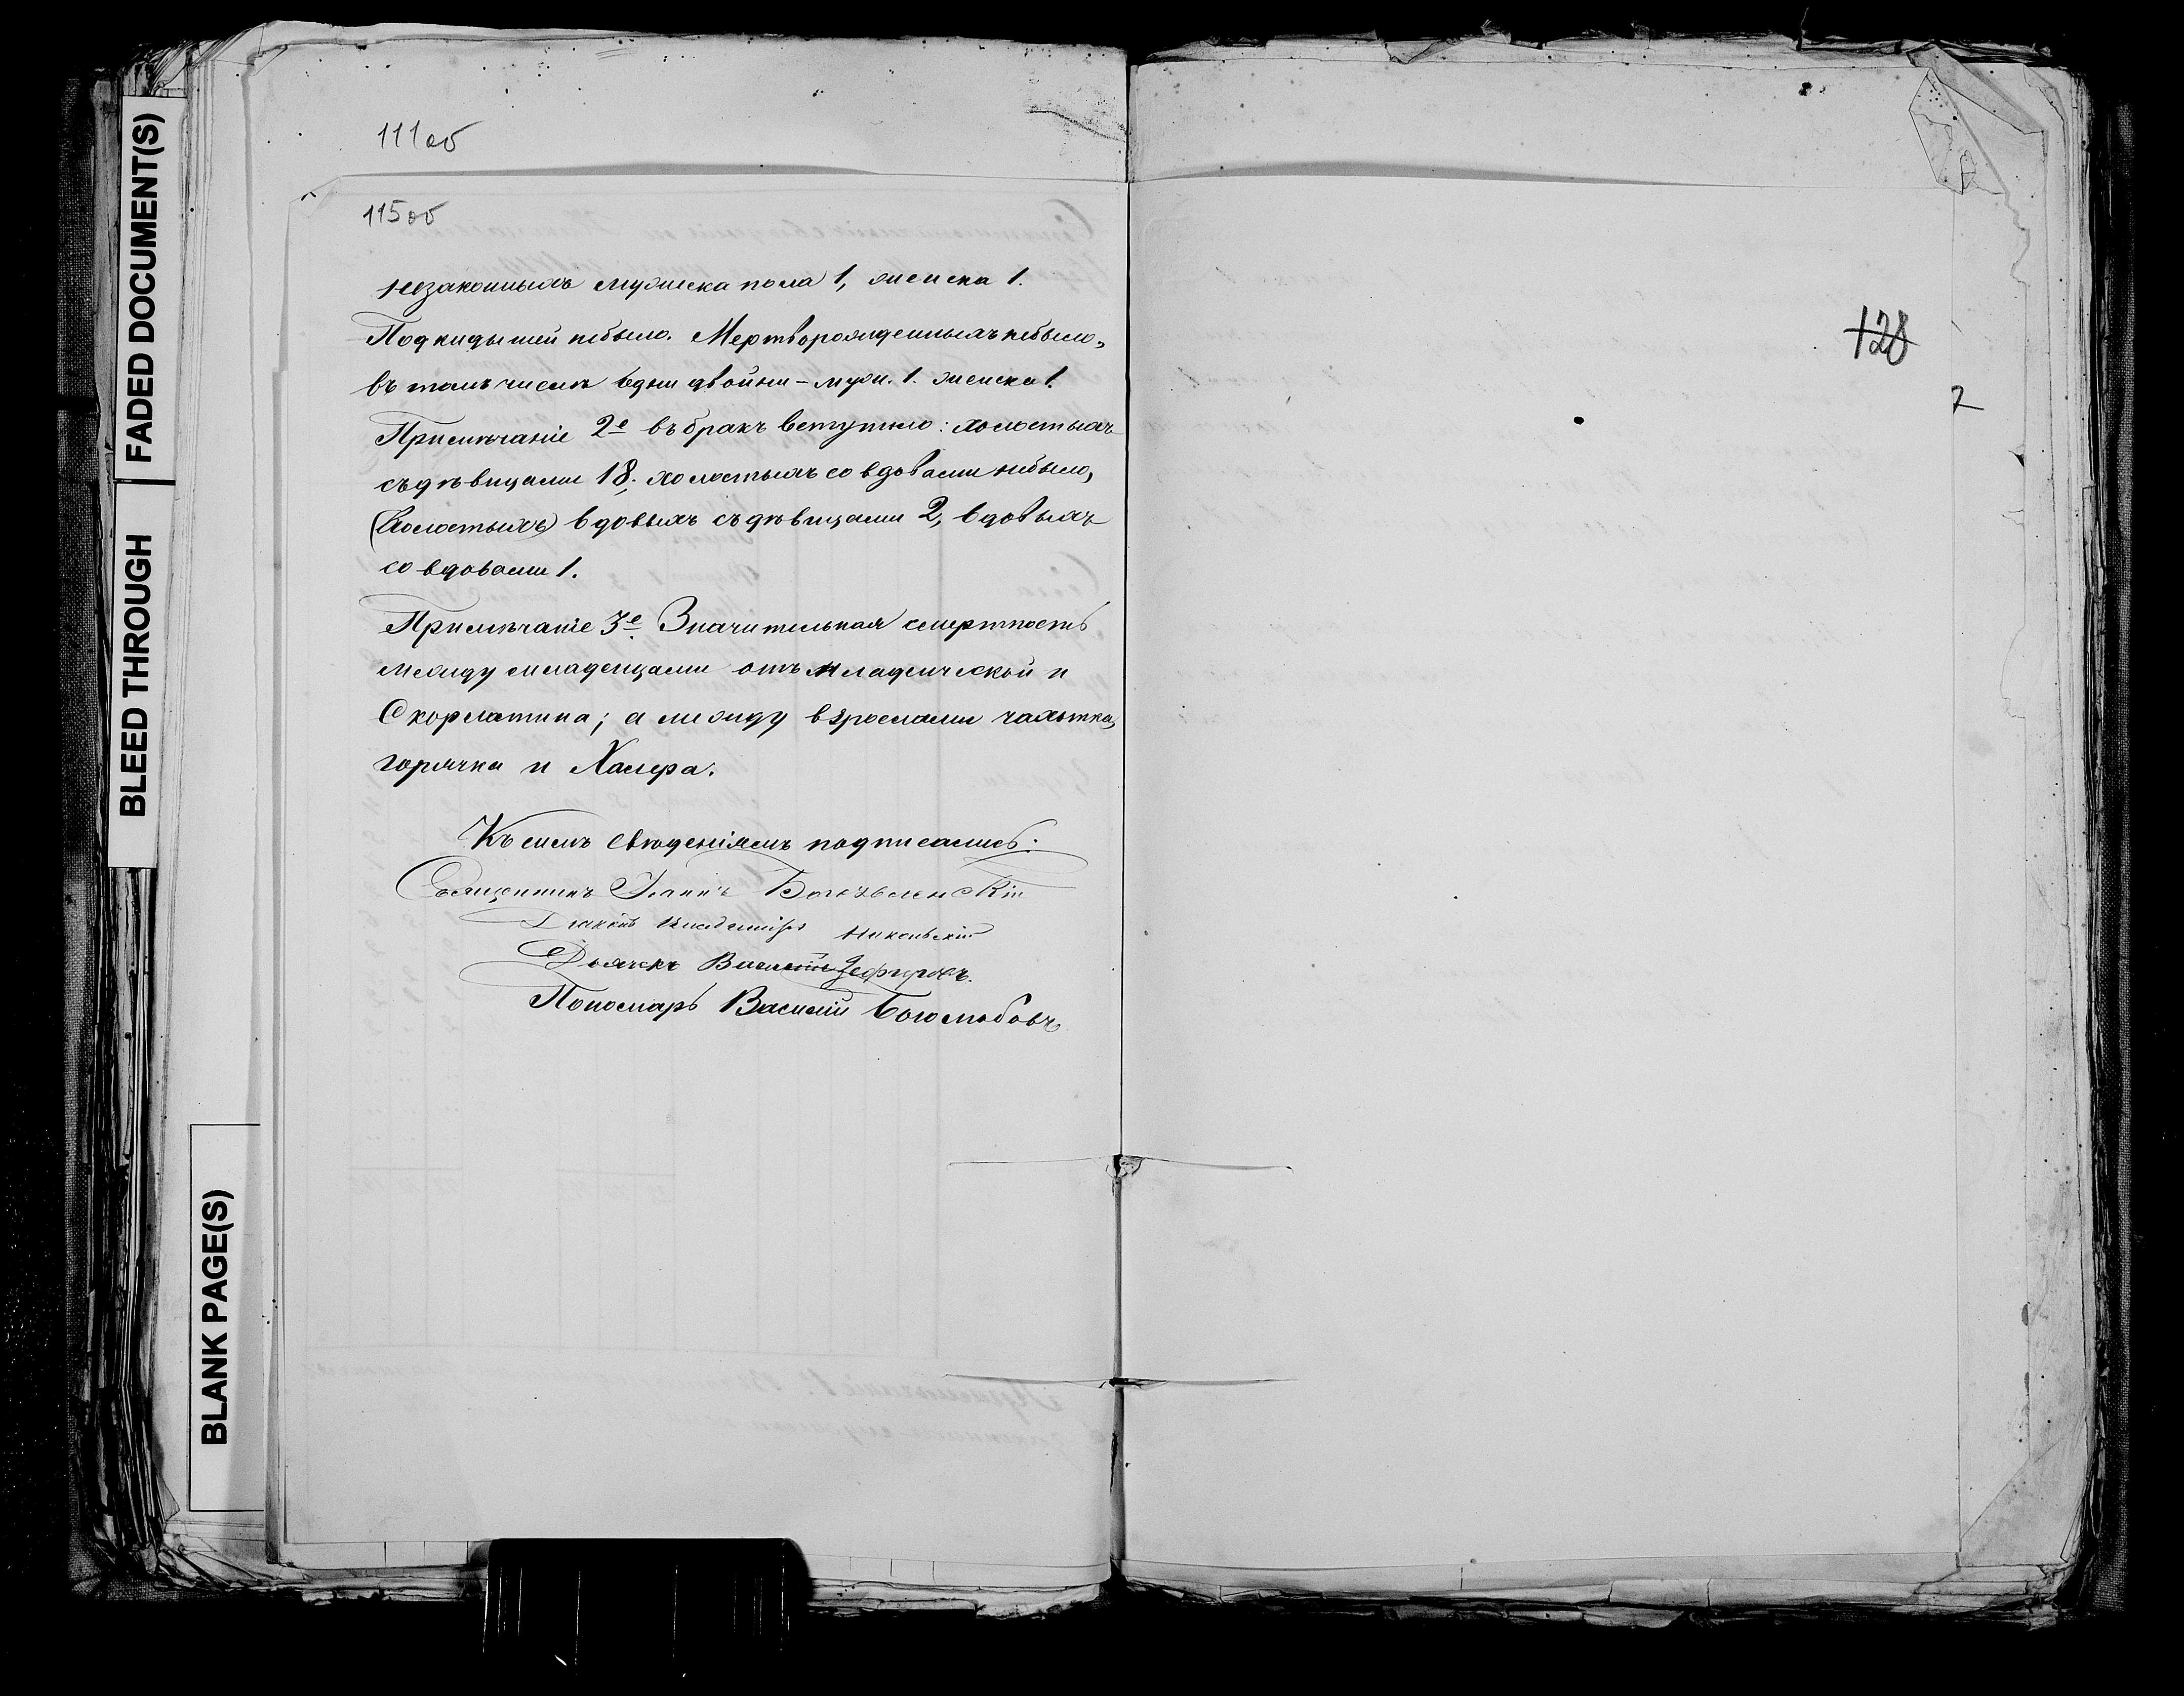 FADED DOCUMENT(S)
BLEED THROUGH
BLANK PAGE(S)
111об
115об
незаконныхъ мужска пола 1, женска 1.
Подкидышей небыло. Мертворожденныхъ небыло,
въ томъ числѣ одни двойни - муж. 1. женска 1.
Примѣчаніе 2е въ бракъ вступило: холостыхъ
съ дѣвицами 18; холостыхъ со вдовами небыло,
(холостыхъ) вдовыхъ съ дѣвицами 2, вдовыхъ
со вдовами 1.
Примѣчаніе 3е Значительная смертность
между младенцами отъ младенческой и
Скорлатина; а между взрослыми чахотка,
горячка и Халера.
Къ симъ свѣденіямъ подписались:
Священникъ Іоаннъ Богоявленскій
Діаконъ Никольскій
Дьячекъ Василій Зефировъ.
Пономарь Василій Боголюбовъ
128
2